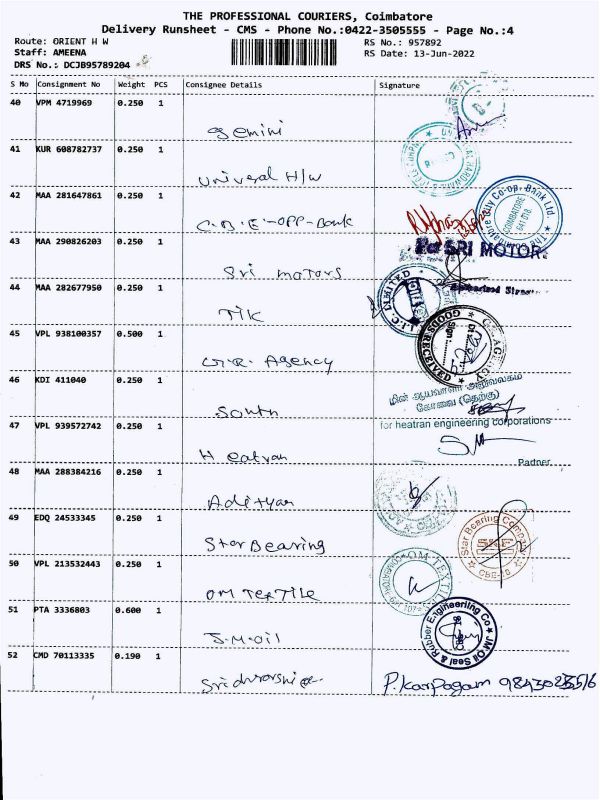 THE PROFESSIONAL COURIERS, Coimbatore
Delivery Runsheet - CMS - Phone No.:0422-3505555 - Page No.:4
Route: ORIENT H W
RS No.: 957892
Staff: AMEENA
RS Date: 13-Jun-2022
DRS No.: DCJB95789204
S Mo Consignment No Weight PCS Consignee Details Signature
40 VPM 4719969 0.250 1
Gemini
41 KUR 608782737 0.250 1
Univesal H/W
42 MAA 281647861 0.250 1
C.B.E-OPP-Bank
COIMBATORE
641 018
43 MAA 290826203 0.250 1
For SRI MOTOR
Sri motors
44 MAA 282677950 0.250 1
TIK
45 VPL 938100357 0.500 1
GOODS RECEIVED
G.R. Agency
46 KDI 411040 0.250 1
மின் ஆய்வாளர் அலுவலகம்
கோவை (தெற்கு)
South
47 VPL 939572742 0.250 1
for heatran engineering corporations
Heatran
Partner
48 MAA 288384216 0.250 1
Adityan
49 EDQ 24533345 0.250 1
Star Bearing Company
SKF
CBE-18
Star Bearing
50 VPL 213532443 0.250 1
OM TEXTILE
OM TEXTILE
51 PTA 3336803 0.600 1
JM Oil Seal & Rubber Engineering Co
J.M.Oil
52 CMD 70113335 0.190 1
P. Karpagam